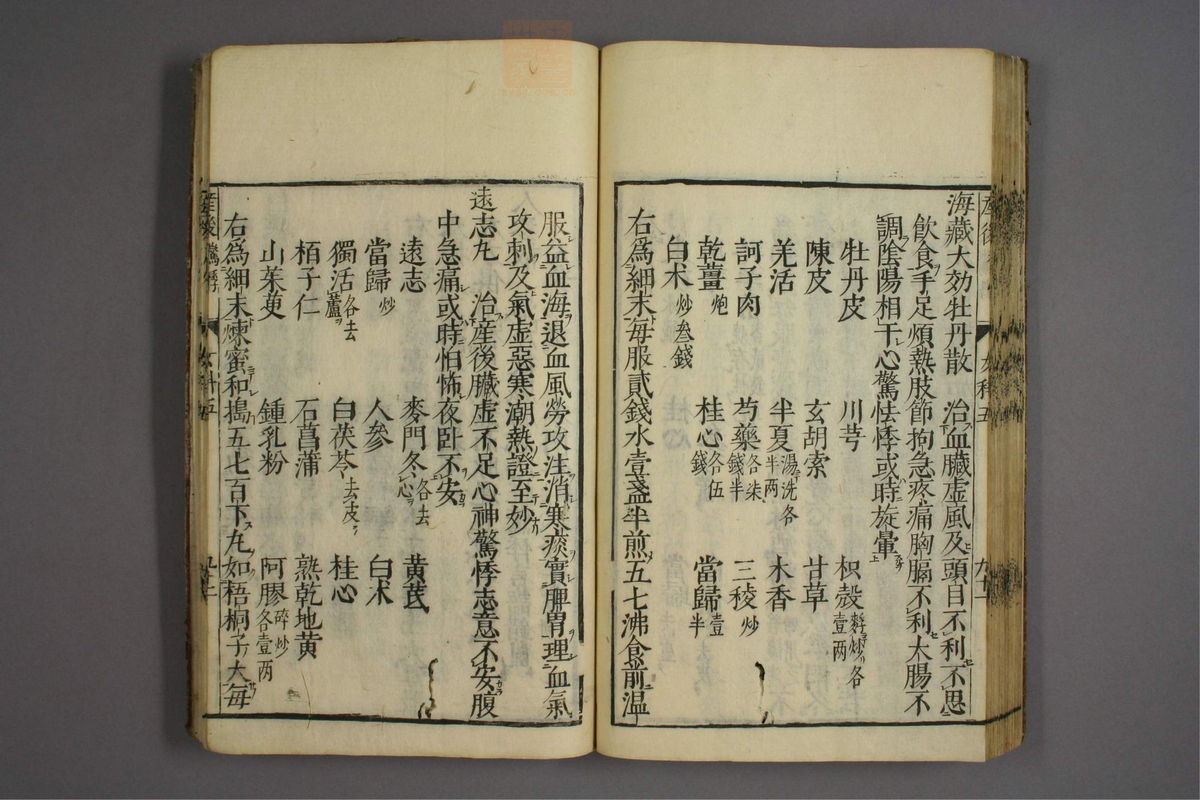 海藏大効牡丹散　治血臓虚風及頭目不利不思
飲食手足煩熱肢節拘急疼痛胸膈不利大腸不
調陰陽相干心驚怯悸或時旋暈
牡丹皮　川芎　枳殼麩炒各壹两
陳皮　玄胡索　甘草
羌活　半夏湯洗各半两　木香
訶子肉　芍藥各柒錢半　三稜炒
乾薑炮　桂心各伍錢　當歸壹半
白术炒叁錢
右為細末毎服貳錢水壹盞半煎五七沸食前温
服益血海退血風勞攻注消寒痰實脾胃理血氣
攻刺及氣虚惡寒潮熱證至妙
遠志丸　治産後臓虚不足心神驚悸志意不安腹
中急痛或時怕怖夜卧不安
遠志　麥門冬各去心　黄芪
當歸炒　人參　白术
獨活各去蘆　白茯苓去皮　桂心
栢子仁　石菖蒲　熟乾地黄
山茱萸　鍾乳粉　阿膠碎炒各壹两
右為細末煉蜜和搗五七百下丸如梧桐子大毎
産後
女科五
九十二